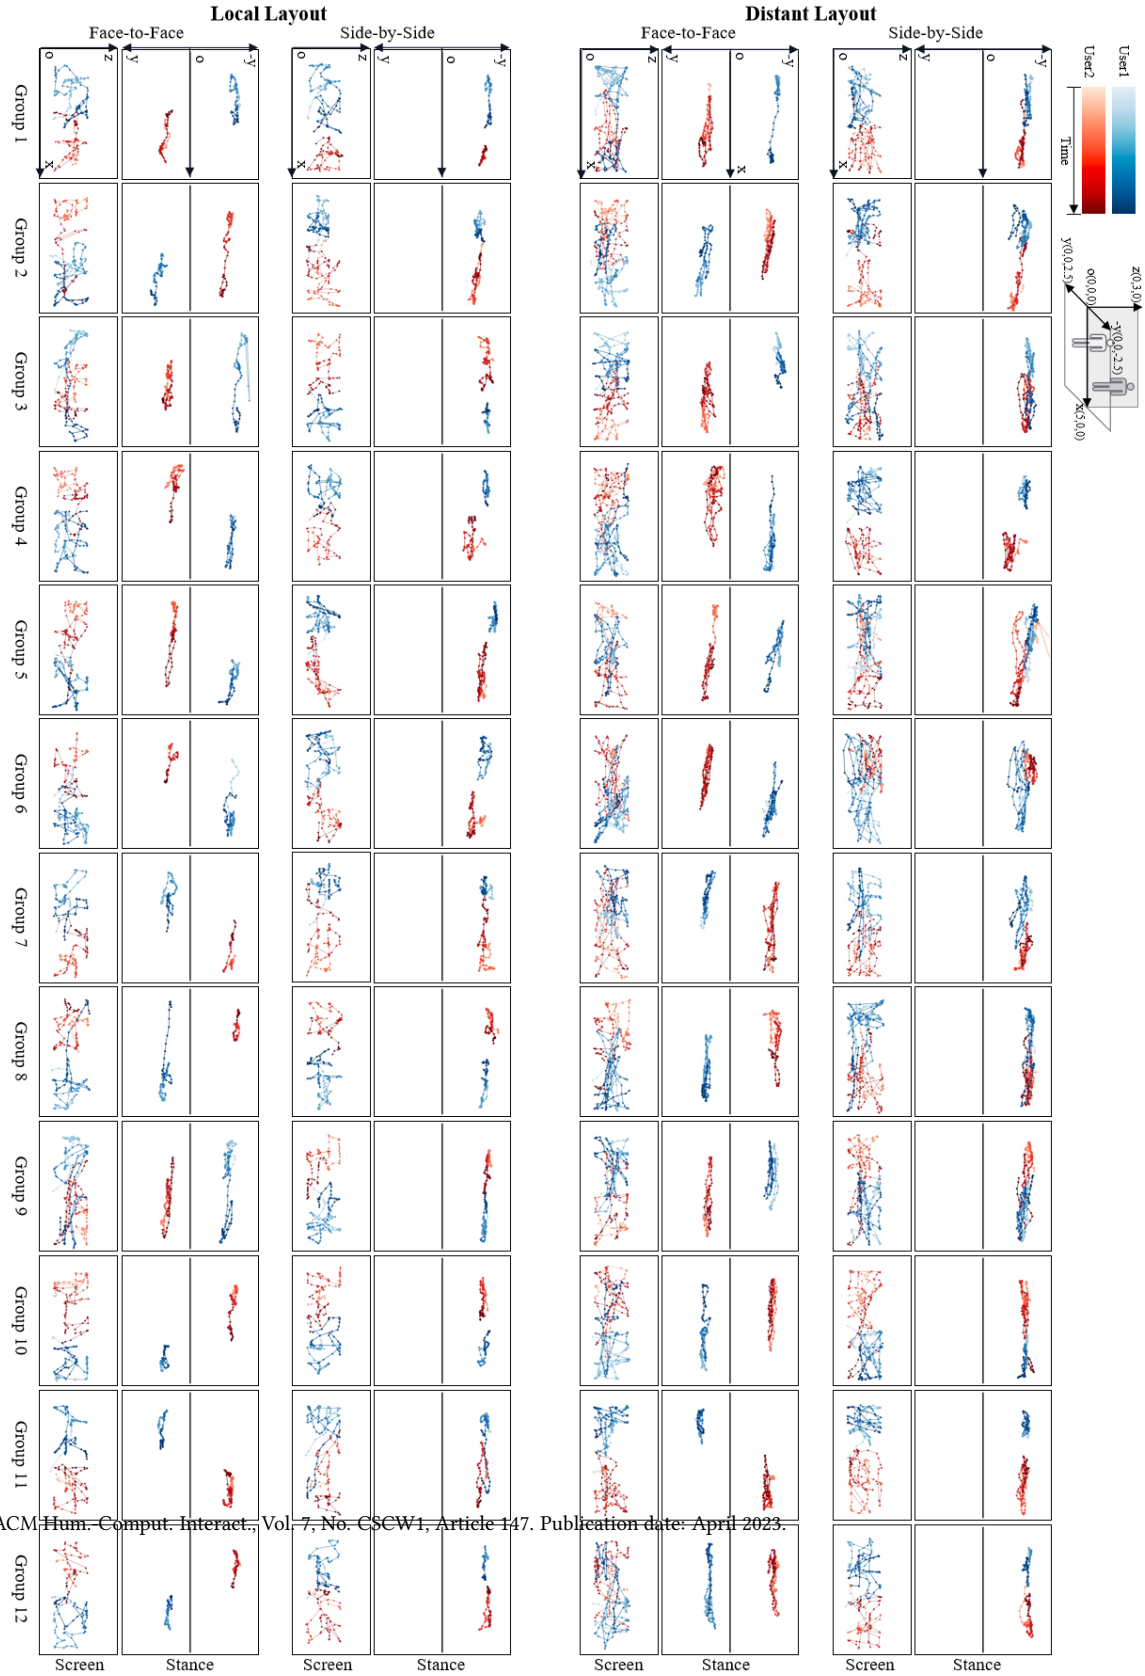 Local Layout
Distant Layout
Face-to-Face
Side-by-Side
Face-to-Face
Side-by-Side
o
z
y
o
-y
o
z
y
o
-y
o
z
y
o
-y
o
z
y
o
-y
x
x
x
x
x
User2
User1
Time
z(0,3,0)
y(0,0,2.5)
o(0,0,0)
-y(0,0,-2.5)
x(5,0,0)
Group 1
Group 2
Group 3
Group 4
Group 5
Group 6
Group 7
Group 8
Group 9
Group 10
Group 11
ACM Hum.-Comput. Interact., Vol. 7, No. CSCW1, Article 147. Publication date: April 2023.
Group 12
Screen
Stance
Screen
Stance
Screen
Stance
Screen
Stance